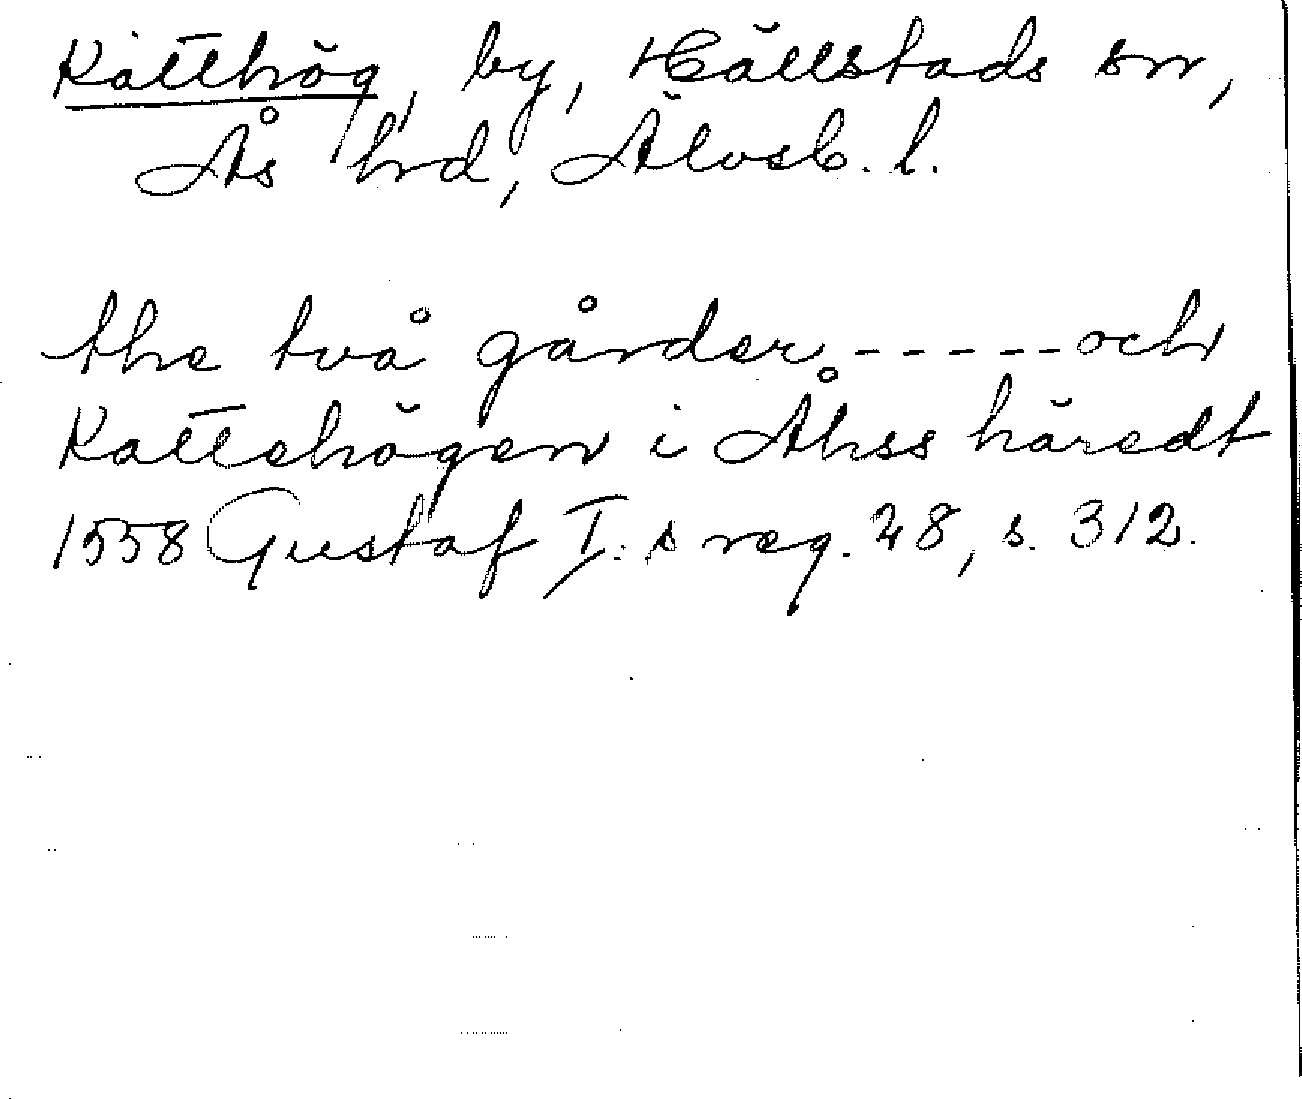 Kätthög, by, Hällstads sn,
Ås hrd, Älvsb. l.
the två gårder - - - - - och
Kattehögen i Åhss häredt
1558 Gustaf I:s reg. 28, s. 312.